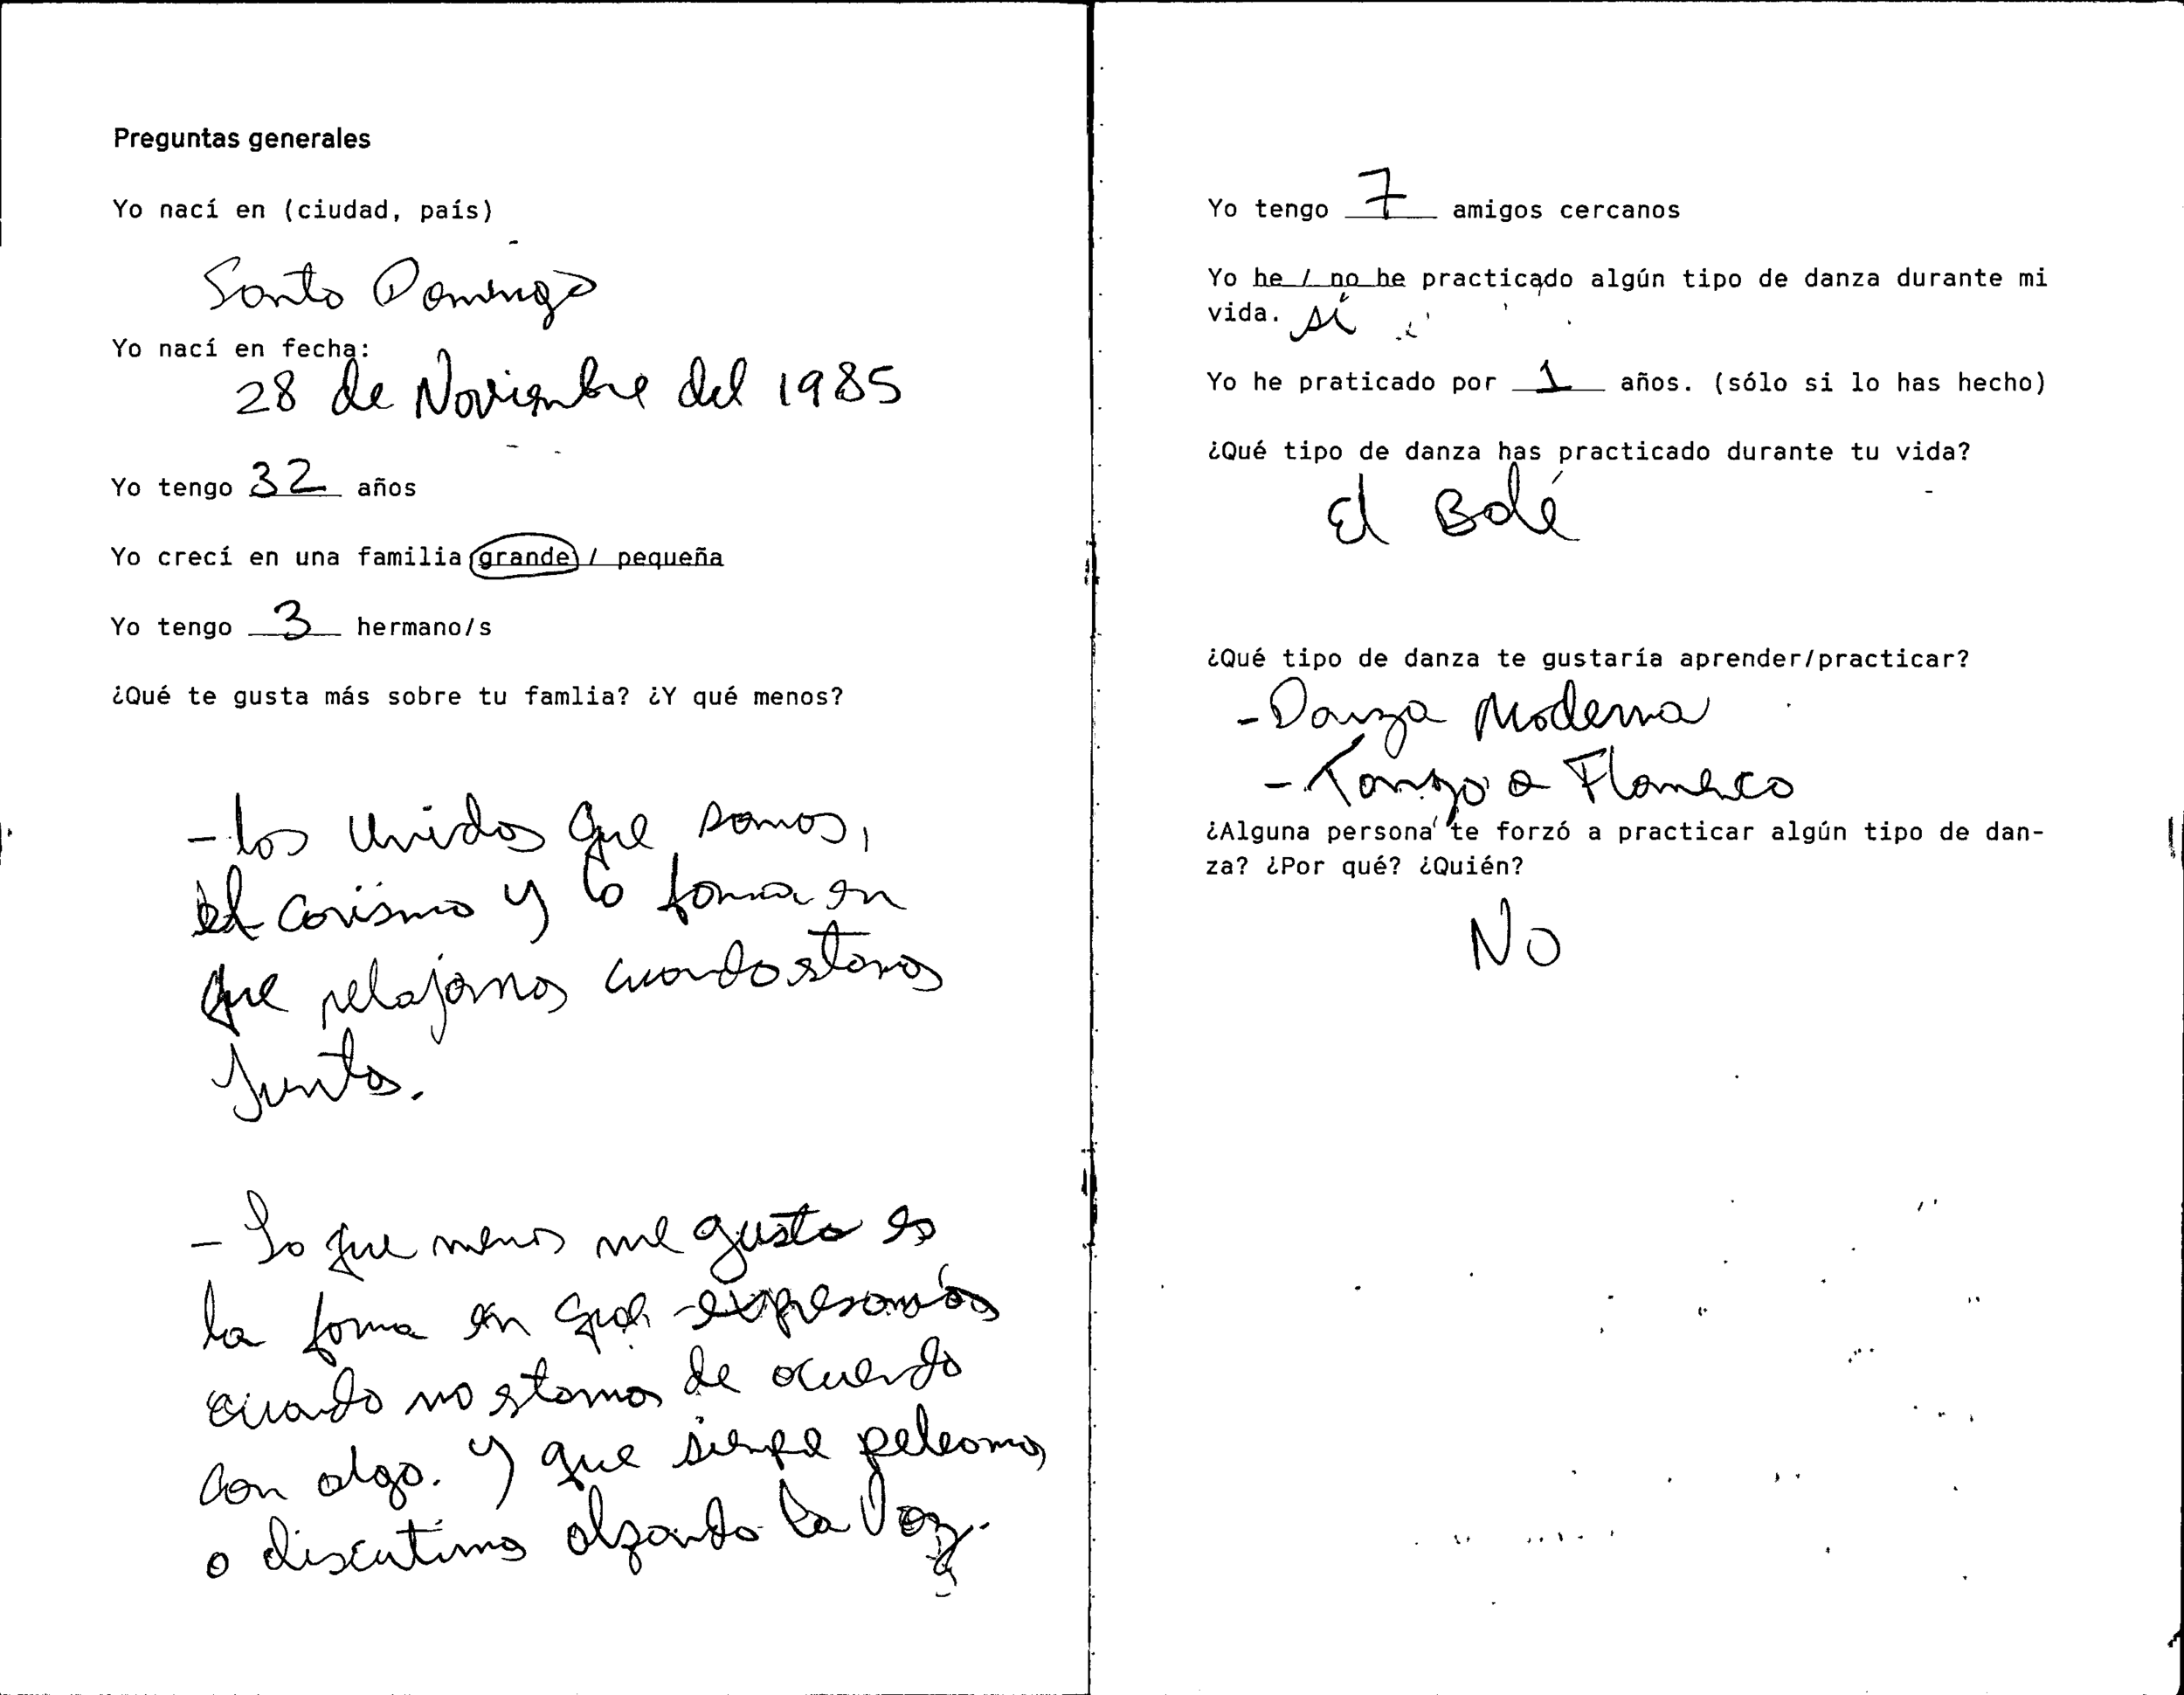 Preguntas generales
Yo nací en (ciudad, país)
Santo Domingo
Yo nací en fecha:
28 de Noviembre del 1985
Yo tengo 32 años
Yo crecí en una familia grande / pequeña
Yo tengo 3 hermano/s
¿Qué te gusta más sobre tu famlia? ¿Y qué menos?
- Los unidos que somos,
el carismo y la forma en
que relajamos cuando stamos
Juntos.
- Lo que menos me gusta es
la forma en que expresamos
cuando no stamos de acuerdo
con algo. Y que siempre peleamos
o discutimos alzando la Voz.
Yo tengo 7 amigos cercanos
Yo he / no he practicado algún tipo de danza durante mi
vida. sí
Yo he praticado por 1 años. (sólo si lo has hecho)
¿Qué tipo de danza has practicado durante tu vida?
El Balé
¿Qué tipo de danza te gustaría aprender/practicar?
- Danza Moderna
- Tango o Flamenco
¿Alguna persona te forzó a practicar algún tipo de dan-
za? ¿Por qué? ¿Quién?
No